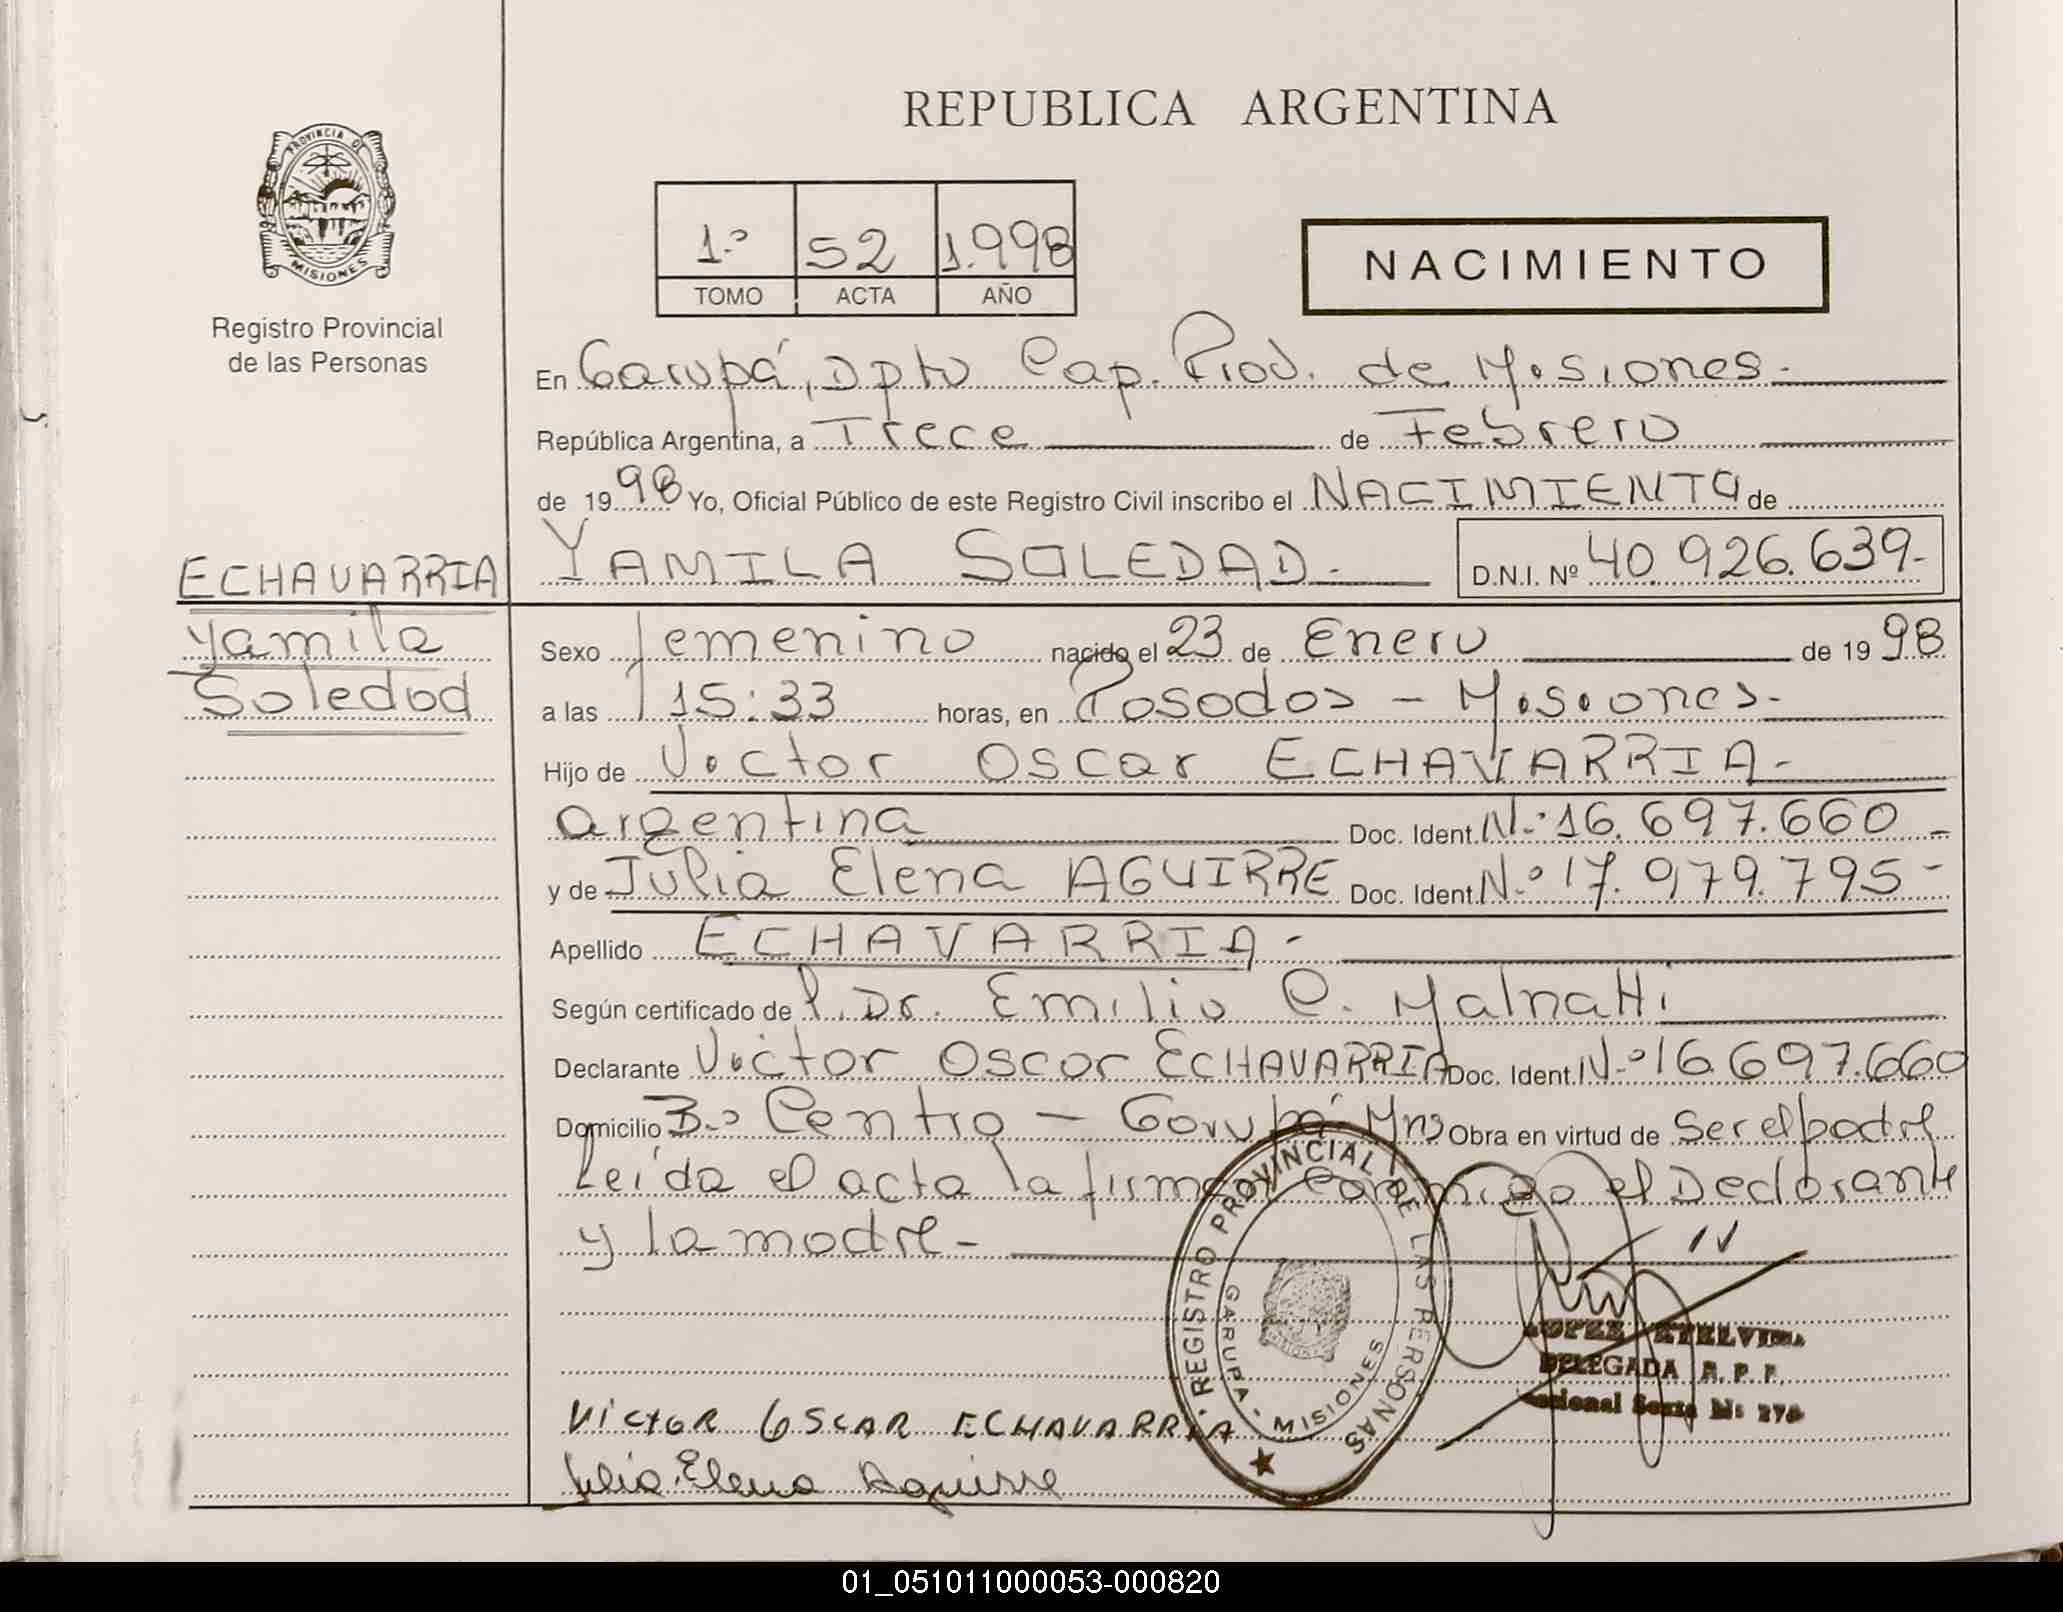 REPUBLICA ARGENTINA
PROVINCIA DE
MISIONES
Registro Provincial
de las Personas
1.º 52 1.998
TOMO ACTA AÑO
NACIMIENTO
En Garupá, Dpto Cap. Prov. de Misiones.-
República Argentina, a Trece de Febrero
de 19 98 Yo, Oficial Público de este Registro Civil inscribo el NACIMIENTO de
YAMILA SOLEDAD.- D.N.I. Nº 40.926.639.-
ECHAVARRIA
Yamila
Soledad
Sexo femenino nacido el 23 de Enero de 19 98
a las 15:33 horas, en Posadas - Misiones.-
Hijo de Victor Oscar ECHAVARRIA.-
argentina Doc. Ident. N.º 16.697.660 -
y de Julia Elena AGUIRRE Doc. Ident. N.º 17.979.795 -
Apellido ECHAVARRIA.-
Según certificado de p. Dr. Emilio C. Malnatti
Declarante Victor Oscar ECHAVARRIA Doc. Ident. N.º 16.697.660
Domicilio B.º Centro - Garupá Mns Obra en virtud de Ser el padre
Leída el acta la firma Conmigo el Declarante
y la madre.-
REGISTRO PROVINCIAL DE LAS PERSONAS
GARUPA - MISIONES
LOPEZ ETELVINA
DELEGADA R. P. P.
VICTOR OSCAR ECHAVARRIA
Julia Elena Aguirre
01_051011000053-000820